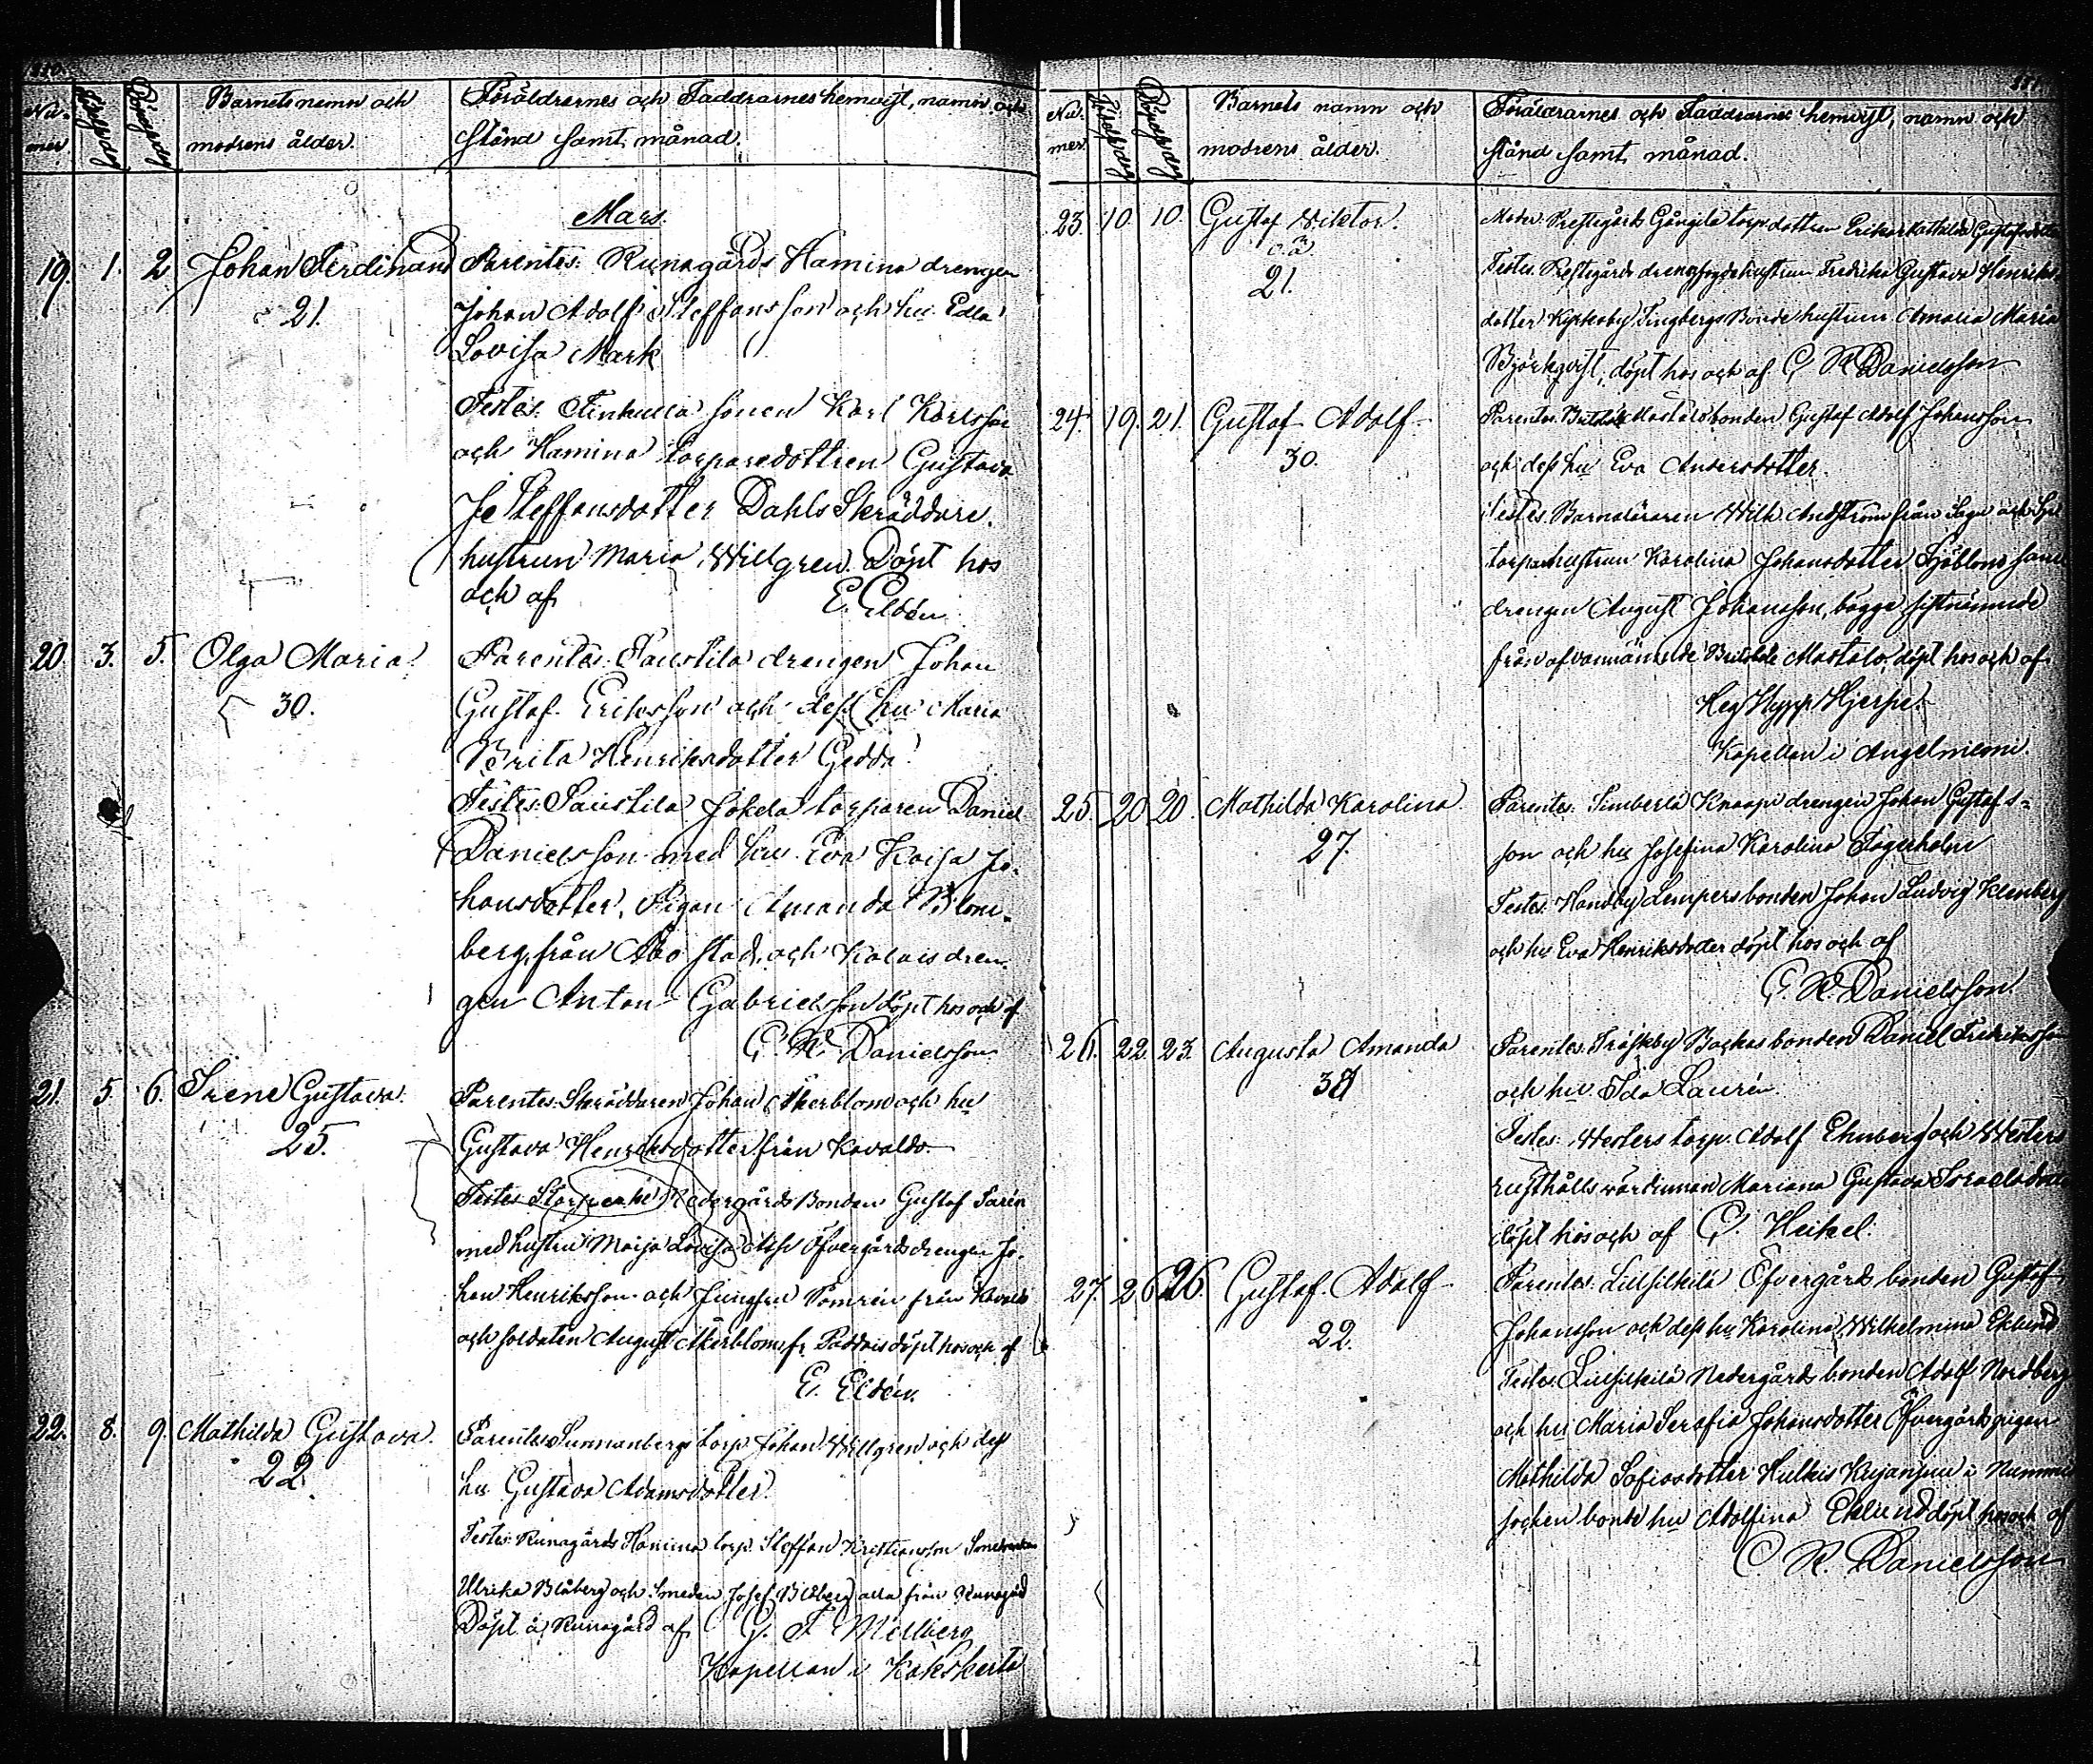 Nu-
mer
Födelsedag
Döpelsedag
Barnets namn och
modrens ålder.
Föräldrarnes och Faddrarnes hemvist, namn och
stånd samt månad.
Mars.
19. 1. 2. Johan Ferdinand
21.
Parentes: Runagårds Hamina drengen
Johan Adolf Steffansson och hu Edla
Lovisa Mark
Testes: Finkulla sonen Karl Karlsson
och Hamina torparedottren Gustava
Steffansdotter Dahls Skräddare
hustrun Maria Willgren. Döpt hos
och af
E. Eldén
20. 3. 5. Olga Maria.
30.
Parentes: Paustila drengen Johan
Gustaf Eriksson och dess hu Maria
Brita Henriksdotter Gedda
Testes: Paustila Jokela torparen Daniel
Danielsson med hu Eva Kaisa Jo-
hansdotter, Pigan Amanda Blom-
berg, från Åbo stad, och Kalais dren-
gen Anton Gabrielsson döpt hos och af
C. R. Danielsson
21. 5. 6. Irene Gustava.
25.
Parentes: Skräddaren Johan Åkerblom och hu
Gustava Henriksdotter från Kavaldo.
Testes: Nedergårds Bonden Gustaf
med hustru Maija Lovisa Öfvergårds drengen Jo-
han Henriksson och Jungfru från
och soldaten August Åkerblom fr. Paddais döpt hos och af
E. Eldén.
22. 8. 9. Mathilda Gustava.
22.
Parentes: Sunnanbergs torp. Johan Willgren och dess
hu Gustava Adamsdotter.
Testes: Runagårds Hamina torp. Steffan Kristiansson
Ulrika Blåberg och smeden Josef Blåberg alla från Runagård
Döpt å Runagård af G. F. Mellberg
Kapellan i Kakskerta
Nu-
mer.
Födelsedag
Döpelsedag
Barnets namn och
modrens ålder.
Föräldrarnes och Faddrarnes hemvist, namn och
stånd samt månad.
23. 10. 10. Gustaf Viktor.
o. ä.
21.
Moder: Prestegårds torp. dottren Erika Mathilda Gustafsdotter
Testes: Prestegårds hustrun Fredrika Gustava Henriks-
dotter Tingbergs Bonde hustrun Amalia Maria
Björkqvist, döpt hos och af C R Danielsson
24. 19. 21. Gustaf Adolf
30.
Parentes: Mastalobonden Gustaf Adolf Johansson
och dess hu Eva Andersdotter.
Testes: Barnaläraren Wilh. från Sagu och
torparhustrun Karolina Johansdotter samt
drengen August Johansson, bägge sistnämnde
från ofvannämnde Mastalo, döpt hos och af
Hjerpe.
Kapellan i Angelniemi.
25. 20. 20. Mathilda Karolina.
27.
Parentes: Simberla Knaapi drengen Johan Gustafs-
son och hu Josefina Karolina Fagerholm
Testes: Handby Lempersbonden Johan Ludvig
och hu Eva Henriksdotter döpt hos och af
C. R. Danielsson
26. 22. 23. Augusta Amanda
Parentes: Tröjsby Backas bonden Daniel Fredriksson
och hu Ida Laurén.
Testes: Westers torp. Adolf Ehnberg och Westers
rusthålls värdinnan Mariana Gustava Israelsdotter
döpt hos och af G. Heikel.
27. 26. 26. Gustaf Adolf
22.
Parentes: Öfvergårds bonden Gustaf
Johansson och dess hu Karolina Wilhelmina Eklund
Testes: Nedergårds bonden Adolf Nordberg
och hu Maria Serafia Johansdotter Öfvergårds pigan
Mathilda Sofiasdotter i Nummis
socken bonde hu Adolfina Eklund döpt hos och af
C R. Danielsson